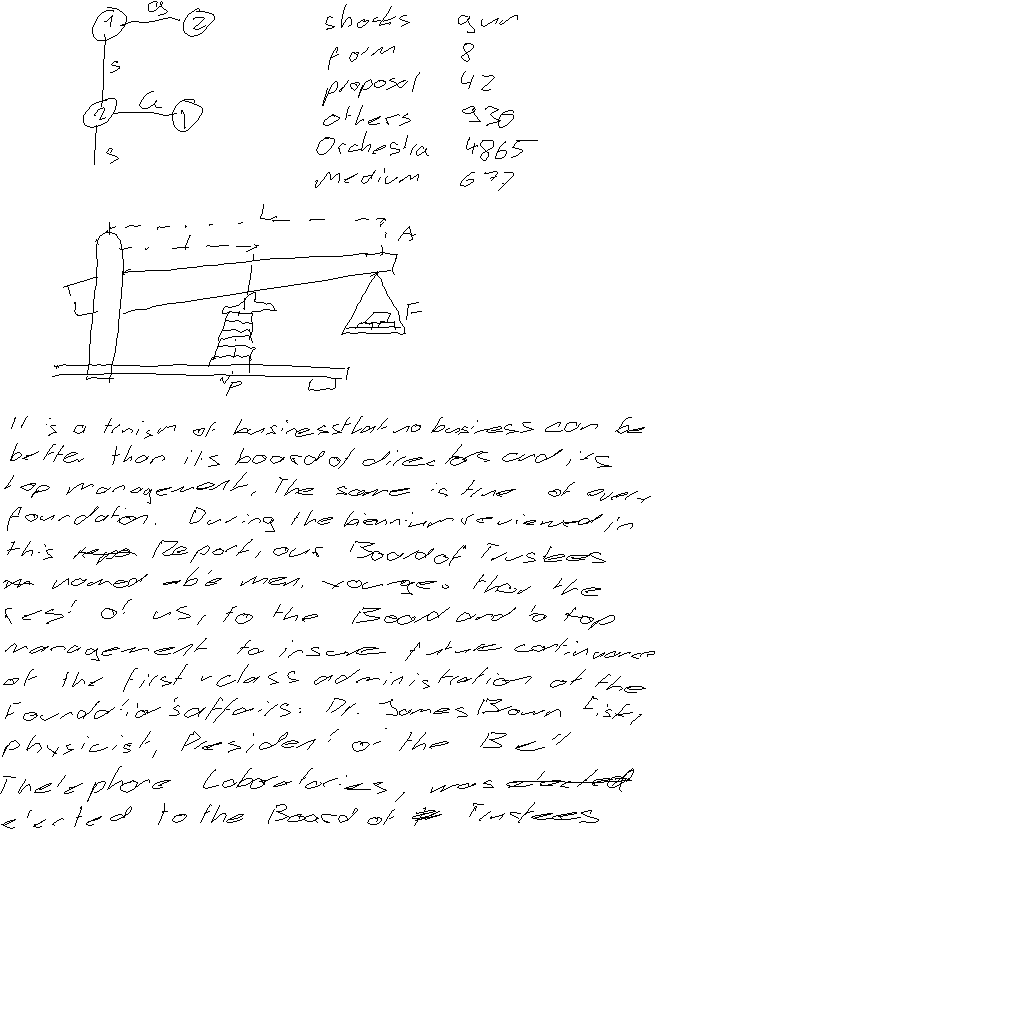 1 2
s
2 a 1
s
shocks gun
form 8
proposal 42
others 930
Orchestra 4865
Medium 677
L
l A
F
P
It is a truism of business that no business can be
better than its board of directors and its
top management. The same is true of every
foundation. During the biennium reviewed in
this Report, our Board of Trustees
named able men, younger than the
rest of us, to the Board and to top
management to insure future continuance
of the first-class administration of the
Foundation's affairs. Dr. James Brown Fisk,
physicist, President of the Bell
Thelephone Laboratories, was elected
elected to the Board of Trustees